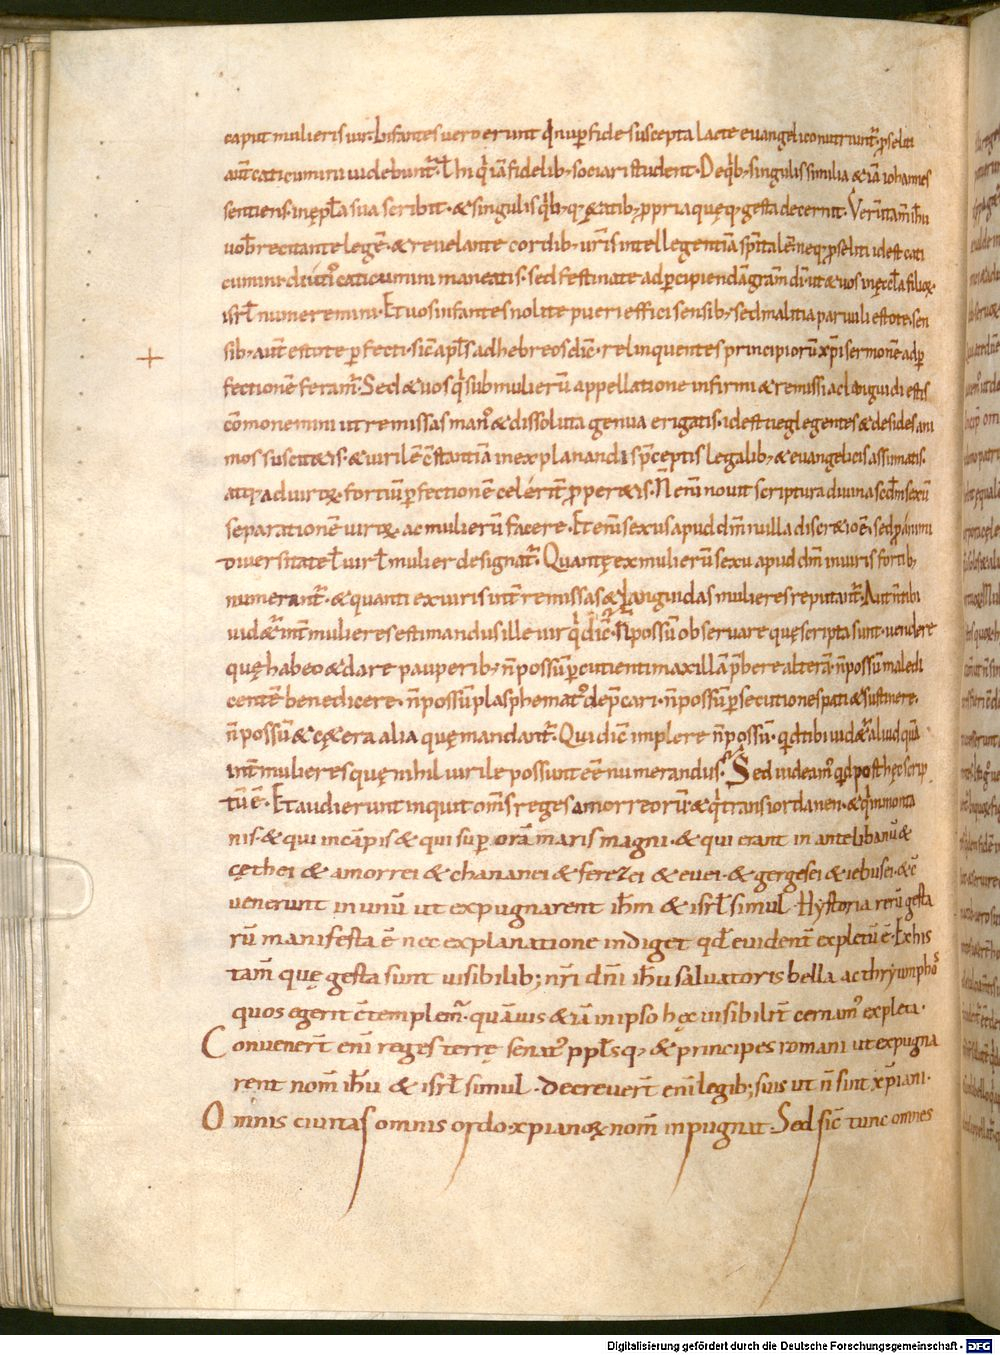 caput mulieris uir. Infantes uero erunt qui nup̄ fide suscepta lacte euangelico nutriunt᷑. p̄seliti
aut̄ caticumini uidebunt᷑. ul̄ hi q̇ iā fidelib; sociari student. De q̇b; singulis similia & iā iohannes
sentiens. in ęp̄la sua scribit. & singulis q̇b;q; ętatib; ꝓpria quęq; gesta decernit. Verūtam̄ ih̄u
uob̄ recitante legē. & reuelante cordib; ur̄is intellegentiā sp̄italē. neq; p̄seliti idest cati
cumini diutiꝰ caticumini maneatis. sed festinate ad p̄cipiendā gratiā dī. ut & uos in ęccl̄a filioꝝ
isrl̄ numeremini. Et uos infantes nolite pueri effici sensib; sed malitia paruuli estote. sen
sib; aut̄ estote perfecti. sic̄ apl̄s ad hebreos dic̄. relinquentes principiorū xp̄i sermonē ad per
fectionē feram᷑. Sed & uos q̇ sub mulierū appellatione infirmi & remissi ac languidi estis
cōmonemini ut remissas manꝰ & dissoluta genua erigatis. idest neglegentes & desides ani
mos suscitetis. & uirilē c̄stantiā in explanandis p̄ceptis legalib; & euangelicis assumatis.
atq; ad uiroꝝ fortiū perfectionē celerit᷑ properetis. N̄ enī nouit scriptura diuina scd̄m sexū
separationē uiroꝝ ac mulierū facere. Et enī sexus apud dm̄ nulla discretio ē. sed p animi
diuersitatē ul̄ uir ul̄ mulier designat᷑. Quantę ex mulierū sexu apud dm̄ in uiris fortib;
numerant᷑. & quanti ex uiris int᷑ remissas & languidas mulieres reputant᷑. Aut n̄ tibi
uidet᷑ int᷑ mulieres estimandus ille uir q̇ dic̄. N̄ possū obseruare quę scripta sunt. uendere
quę habeo & dare pauperib; n̄ possū. percutienti maxillā p̄bere alterā n̄ possū. maledi
centē benedicere n̄ possū. plasphematꝰ dep̄cari n̄ possū. persecutiones pati & sustinere
n̄ possū. & cętera alia quę mandant᷑. Qui dic̄ implere n̄ possū. qd̄ tibi uidet᷑ aliud quā
int᷑ mulieres quę nihil uirile possunt eē numerandus. Sed uideamꝰ qd̄ post hęc scrip
tū ē. Et audierunt inquit om̄s reges amorreorū & q̇ trans iordanen. & q̇ in monta
nis. & qui in cāpis & qui super orā maris magni. & qui erant in antelibanū &
cęthei & amorrei & chananei & ferezei & euei. & gergesei & iebusei. & c̄
uenerunt in unū ut expugnarent ih̄m & isrl̄ simul. Hystoria rerū gesta
rū manifesta ē nec explanatione indiget qd̄ euident᷑ expletū ē. Ex his
tam̄ quę gesta sunt uisibilib; nr̄i dn̄i ih̄u saluatoris bella ac thryumphos
quos egerit c̄templem᷑. quāuis & iā in ipso hęc uisibilit᷑ cernamꝰ expleta.
Conuenert̄ enī reges terrę senatꝰ ppl̄sq; & principes romani ut expugna
rent nom̄ ih̄u & isrl̄ simul. decreuert̄ enī legib; suis ut n̄ sint xp̄iani.
Omnis ciuitas omnis ordo xpianoꝝ nom̄ inpugnat. Sed sic̄ tunc omnes
Digitalisierung gefördert durch die Deutsche Forschungsgemeinschaft - DFG